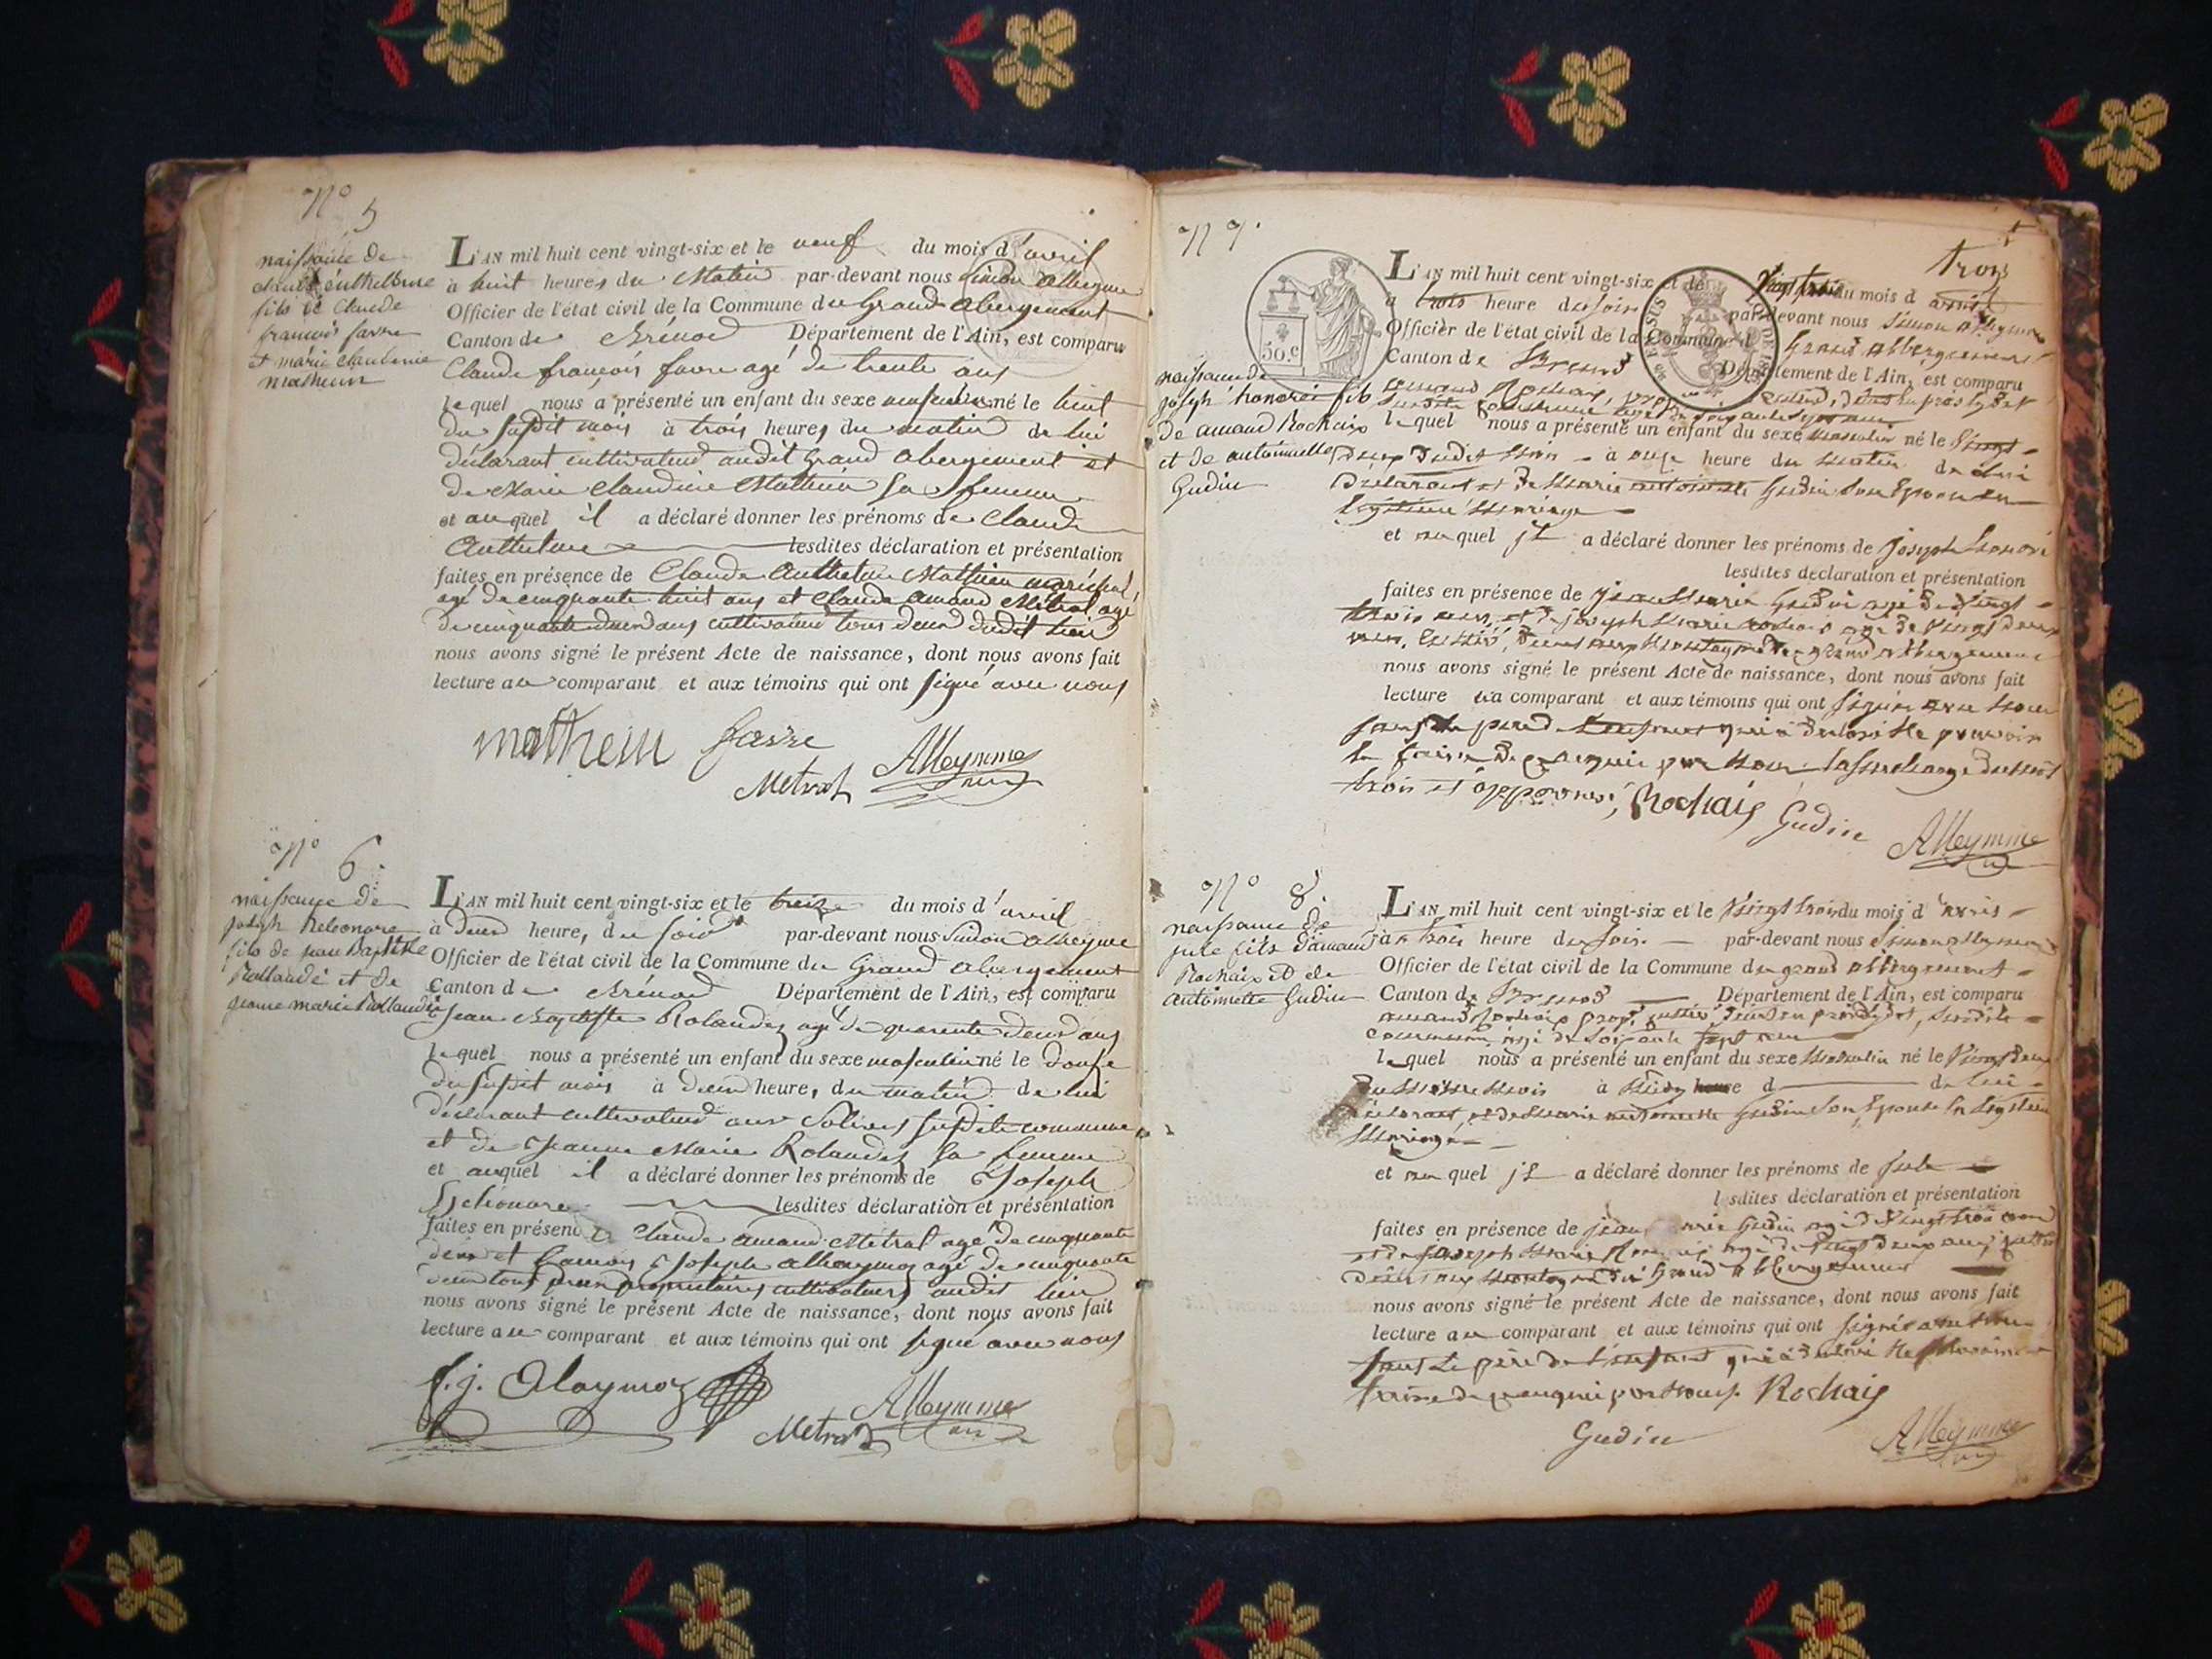 N° 5
naissance de
claude anthelme
fils de Claude
françois favre
et marie claudine
mathieu
L'AN mil huit cent vingt-six et le neuf du mois d'avril
à huit heures du Matin par-devant nous Simon alleyme
Officier de l'état civil de la Commune du Grand abergement
Canton de Brénod Département de l'Ain, est comparu
Claude françois favre agé de trente ans
lequel nous a présenté un enfant du sexe masculin né le huit
du susdit mois à trois heures du matin de lui
déclarant cultivateur audit Grand abergement et
de Marie Claudine Mathieu sa femme
et auquel il a déclaré donner les prénoms de Claude
Anthelme lesdites déclaration et présentation
faites en présence de Claude Anthelme Mathieu maréchal,
agé de cinquante huit ans et Claude amand Métral agé
de cinquante deux ans cultivateur tous deux dudit lieu
nous avons signé le présent Acte de naissance, dont nous avons fait
lecture au comparant et aux témoins qui ont signé avec nous
mathieu favre
Metral Alleymme
N° 6.
naissance de
joseph heleonore
fils de jean Baptiste
Rollandé et de
jeanne marie Rollandé
L'AN mil huit cent vingt-six et le treize du mois d'avril
à deux heures du soir par-devant nous Simon alleyme
Officier de l'état civil de la Commune du Grand abergement
Canton de Brénod Département de l'Ain, est comparu
Jean Baptiste Rolandez agé de quarente deux ans
lequel nous a présenté un enfant du sexe masculin né le douze
du susdit mois à deux heures du matin de lui
déclarant cultivateur aux Solives susdite commune
et de Jeanne Marie Rolandez sa femme
et auquel il a déclaré donner les prénoms de Joseph
Heléonore lesdites déclaration et présentation
faites en présence de Claude amand Metral agé de cinquante
deux et françois Joseph allaymoz agé de cinquante
deux tous deux propriétaires cultivateurs audit lieu
nous avons signé le présent Acte de naissance, dont nous avons fait
lecture au comparant et aux témoins qui ont signé avec nous
f. j. Alaymoz
Metral Alleymme
N° 7.
50.c
trois
naissance de
joseph honoré fils
de amand Rochaix
et de antoinette
Gudin
L'AN mil huit cent vingt-six et le Vingt trois du mois d avril
à trois heure du soir par-devant nous Simon alleyme
Officier de l'état civil de la Commune d Grand Abbergement
Canton de Brenod Département de l'Ain, est comparu
amand Rochaix,
susdite commune
lequel nous a présenté un enfant du sexe masculin né le Vingt
deux dudit mois à onze heure du matin de lui
déclarant et de Marie antoinette Gudin son Epouse en
légitime mariage
et au quel jl a déclaré donner les prénoms de joseph honoré
lesdites déclaration et présentation
faites en présence de jean Marie Gudin agé de Vingt
trois ans et de joseph Marie Rochaix agé de Vingt deux
nous avons signé le présent Acte de naissance, dont nous avons fait
lecture au comparant et aux témoins qui ont signés avec nous
sauf le pere de l'enfant qui a déclaré ne pouvoir
le faire de ce requis par nous. la surcharge du mot
trois est approuvée, Rochaix Gudin Alleymme
N° 8.
naissance de
jule fils d'amand
Rochaix et de
antoinette Gudin
L'AN mil huit cent vingt-six et le Vingt trois du mois d'avril
à trois heure du soir par-devant nous Simon alleyme
Officier de l'état civil de la Commune du grand abbergement
Canton de Brenod Département de l'Ain, est comparu
amand Rochaix susdite
commune, agé de soixante sept ans
lequel nous a présenté un enfant du sexe masculin né le Vingt deux
du même mois à midy heure d de lui
déclarant, et de Marie antoinette Gudin son Epouse en légitime
Mariage
et au quel jl a déclaré donner les prénoms de jule
lesdites déclaration et présentation
faites en présence de jean Marie Gudin agé de Vingt trois ans
et de joseph Marie Rochaix agé de Vingt deux ans,
du Grand Abbergement
nous avons signé le présent Acte de naissance, dont nous avons fait
lecture au comparant et aux témoins qui ont signés avec nous
sauf le père de l'enfant qui a déclaré ne pouvoir le
faire de ce requis par nous. Rochaix
Gudin Alleymme